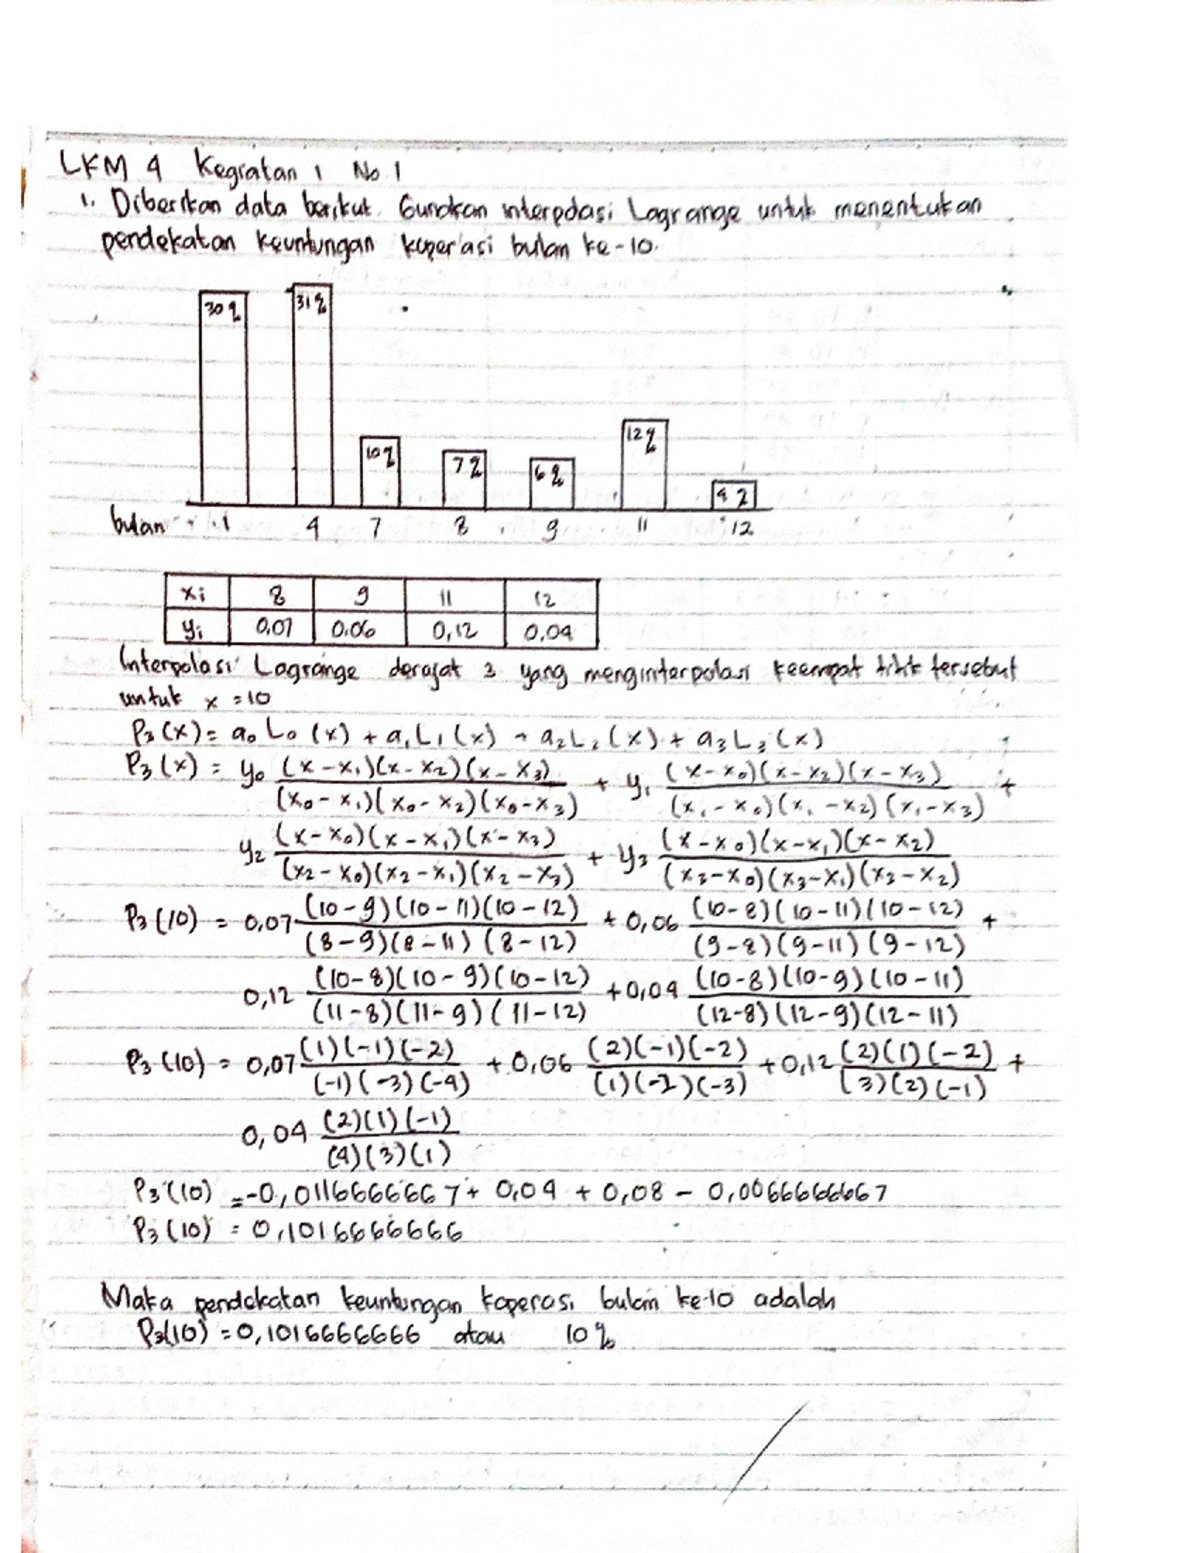 LKM 4 Kegiatan 1 No. 1
1. Diberikan data berikut. Gunakan interpolasi Lagrange untuk menentukan
pendekatan keuntungan koperasi bulan ke-10.
30% 31% 10% 7% 6% 12% 4%
bulan 1 4 7 8 9 11 12
xi 8 9 11 12
yi 0,07 0,06 0,12 0,04
Interpolasi Lagrange derajat 3 yang menginterpolasi keempat titik tersebut
untuk x = 10
P3(x) = a0 L0(x) + a1 L1(x) + a2 L2(x) + a3 L3(x)
P3(x) = y0 (x-x1)(x-x2)(x-x3) / (x0-x1)(x0-x2)(x0-x3) + y1 (x-x0)(x-x2)(x-x3) / (x1-x0)(x1-x2)(x1-x3) +
y2 (x-x0)(x-x1)(x-x3) / (x2-x0)(x2-x1)(x2-x3) + y3 (x-x0)(x-x1)(x-x2) / (x3-x0)(x3-x1)(x3-x2)
P3(10) = 0,07 (10-9)(10-11)(10-12) / (8-9)(8-11)(8-12) + 0,06 (10-8)(10-11)(10-12) / (9-8)(9-11)(9-12) +
0,12 (10-8)(10-9)(10-12) / (11-8)(11-9)(11-12) + 0,04 (10-8)(10-9)(10-11) / (12-8)(12-9)(12-11)
P3(10) = 0,07 (1)(-1)(-2) / (-1)(-3)(-4) + 0,06 (2)(-1)(-2) / (1)(-2)(-3) + 0,12 (2)(1)(-2) / (3)(2)(-1) +
0,04 (2)(1)(-1) / (4)(3)(1)
P3(10) = -0,0116666667 + 0,04 + 0,08 - 0,0066666667
P3(10) = 0,1016666666
Maka pendekatan keuntungan koperasi bulan ke-10 adalah
P3(10) = 0,1016666666 atau 10%